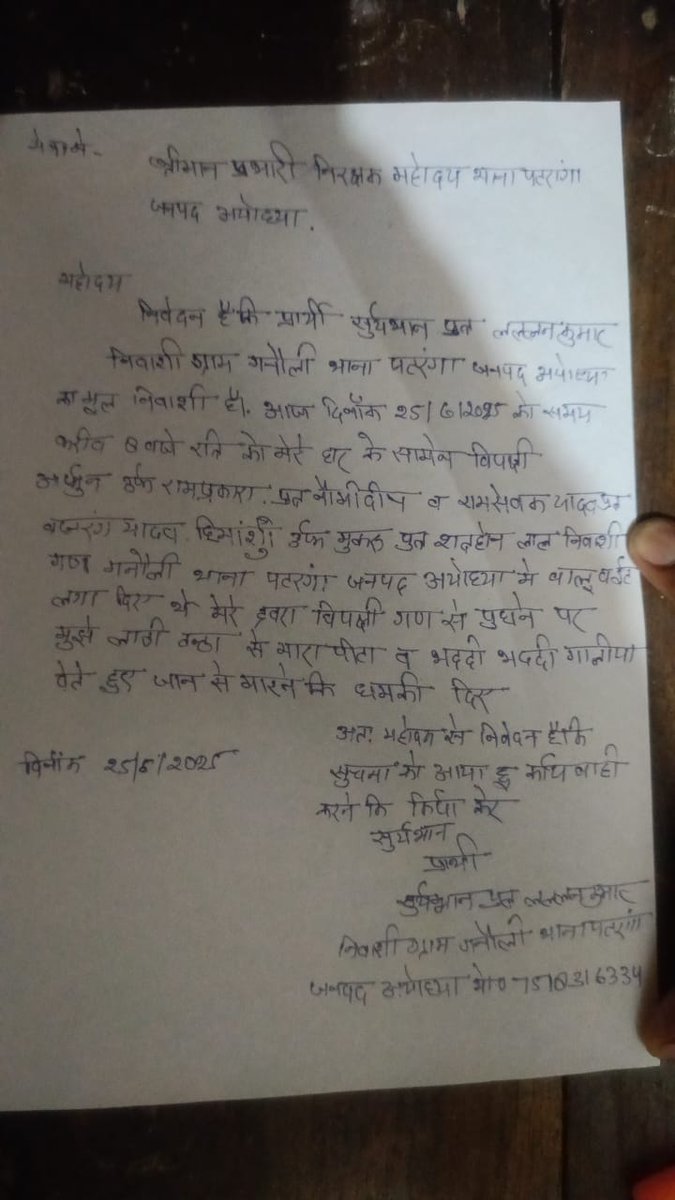 सेवामे-
श्रीमान प्रभारी निरक्षक महोदय थाना पटरंगा
जनपद अयोध्या.
महोदय
निवेदन है कि प्रार्थी सुर्यभान पुत्र लल्लनकुमार
निवाशी ग्राम गनौली थाना पटरंगा जनपद अयोध्या
का मूल निवाशी है. आज दिनाँक 25/6/2025 को समय
करीब 8 बजे रात्रि को मेरे घर के सामने विपक्षी
अर्जुन उर्फ रामप्रकाश. पुत्र व रामसेवक यादव
बजरंग यादव हिमांशुँ उर्फ पुत्र लाल निवाशी
गण गनौली थाना पटरंगा जनपद अयोध्या मे बालू
लगा दिए थे मेरे द्वरा विपक्षी गण से पुछने पर
मुझे लाठी डन्डा से मारा पीटा व भददी भददी गालीया
देते हुए जान से मारने कि धमकी दिए
अतः महोदय से निवेदन है कि
दिनाँक 25/6/2025
सुचना को आया हू कार्यवाही
करने कि क्रिपा करे
सुर्यभान
प्रार्थी
सुर्यभान पुत्र लल्लनकुमार
निवाशी ग्राम गनौली थाना पटरंगा
जनपद अयोध्या मो0 7518316334